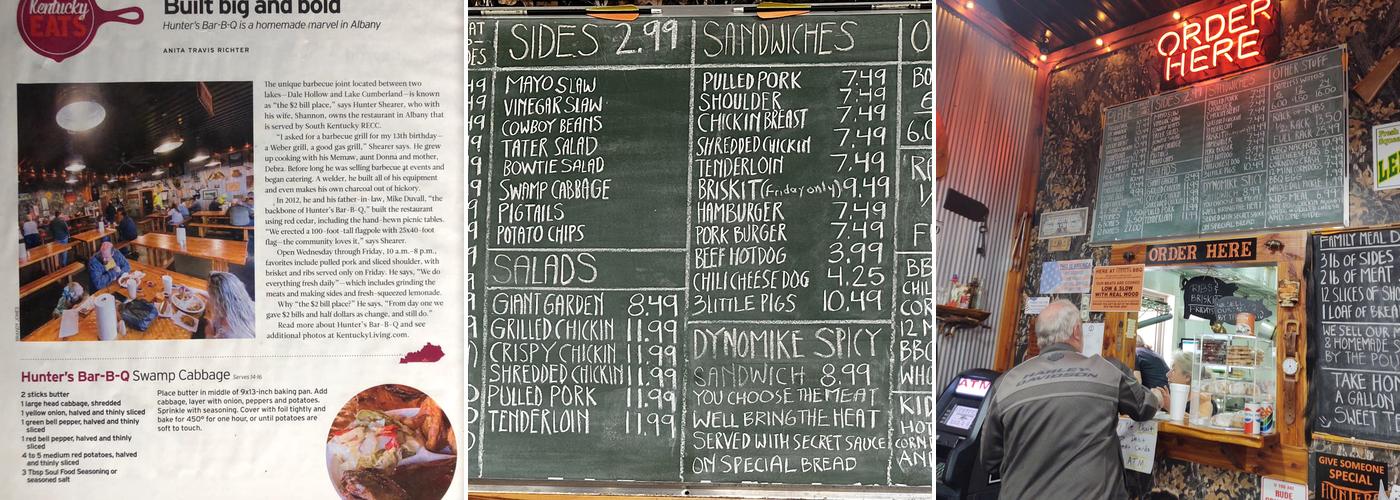 Kentucky
EATS
Built big and bold
Hunter's Bar-B-Q is a homemade marvel in Albany
ANITA TRAVIS RICHTER
The unique barbecue joint located between two
lakes—Dale Hollow and Lake Cumberland—is known
as "the $2 bill place," says Hunter Shearer, who with
his wife, Shannon, owns the restaurant in Albany that
is served by South Kentucky RECC.
"I asked for a barbecue grill for my 13th birthday—
a Weber grill, a good gas grill," Shearer says. He grew
up cooking with his Memaw, aunt Donna and mother,
Debra. Before long he was selling barbecue at events and
began catering. A welder, he built all of his equipment
and even makes his own charcoal out of hickory.
In 2012, he and his father-in-law, Mike Duvall, "the
backbone of Hunter's Bar-B-Q," built the restaurant
using red cedar, including the hand-hewn picnic tables.
"We erected a 100-foot-tall flagpole with 25x40-foot
flag—the community loves it," says Shearer.
Open Wednesday through Friday, 10 a.m.–8 p.m.,
favorites include pulled pork and sliced shoulder, with
brisket and ribs served only on Friday. He says, "We do
everything fresh daily"—which includes grinding the
meats and making sides and fresh-squeezed lemonade.
Why "the $2 bill place?" He says, "From day one we
gave $2 bills and half dollars as change, and still do."
Read more about Hunter's Bar-B-Q and see
additional photos at KentuckyLiving.com.
Hunter's Bar-B-Q Swamp Cabbage Serves 14-16
2 sticks butter
1 large head cabbage, shredded
1 yellow onion, halved and thinly sliced
1 green bell pepper, halved and thinly
sliced
1 red bell pepper, halved and thinly
sliced
4 to 5 medium red potatoes, halved
and thinly sliced
3 Tbsp Soul Food Seasoning or
seasoned salt
Place butter in middle of 9x13-inch baking pan. Add
cabbage, layer with onion, peppers and potatoes.
Sprinkle with seasoning. Cover with foil tightly and
bake for 450° for one hour, or until potatoes are
soft to touch.
SIDES 2.99
MAYO SLAW
VINEGAR SLAW
COWBOY BEANS
TATER SALAD
BOWTIE SALAD
SWAMP CABBAGE
PIGTAILS
POTATO CHIPS
SALADS
GIANT GARDEN 8.49
GRILLED CHICKIN 11.99
CRISPY CHICKIN 11.99
SHREDDED CHICKIN 11.99
PULLED PORK 11.99
TENDERLOIN 11.99
SANDWICHES
PULLED PORK 7.49
SHOULDER 7.49
CHICKIN BREAST 7.49
SHREDDED CHICKIN 7.49
TENDERLOIN 7.49
BRISKIT (Friday only) 9.49
HAMBURGER 7.49
PORK BURGER 7.49
BEEF HOTDOG 3.99
CHILI CHEESE DOG 4.25
3 LITTLE PIGS 10.49
DYNOMIKE SPICY
SANDWICH 8.99
YOU CHOOSE THE MEAT
WELL BRING THE HEAT
SERVED WITH SECRET SAUCE
ON SPECIAL BREAD
ORDER
HERE
SIDES 2.99
SANDWICHES
OTHER STUFF
SALADS
DYNOMIKE SPICY
ORDER HERE
HERE AT HUNTERS BBQ
OUR MEATS ARE COOKED
LOW & SLOW
WITH REAL WOOD
RIBS &
BRISKIT
FRIDAYS
ATM
ATM
FAMILY MEAL D
3 LB OF SIDES
2 LB OF MEAT
12 SLICES OF
1 LOAF OF BREA
WE SELL OUR
& HOMEMADE S
BY THE PO
TAKE HOM
A GALLON
SWEET T
GIVE SOMEONE
SPECIAL
HUNTERS
RUDE